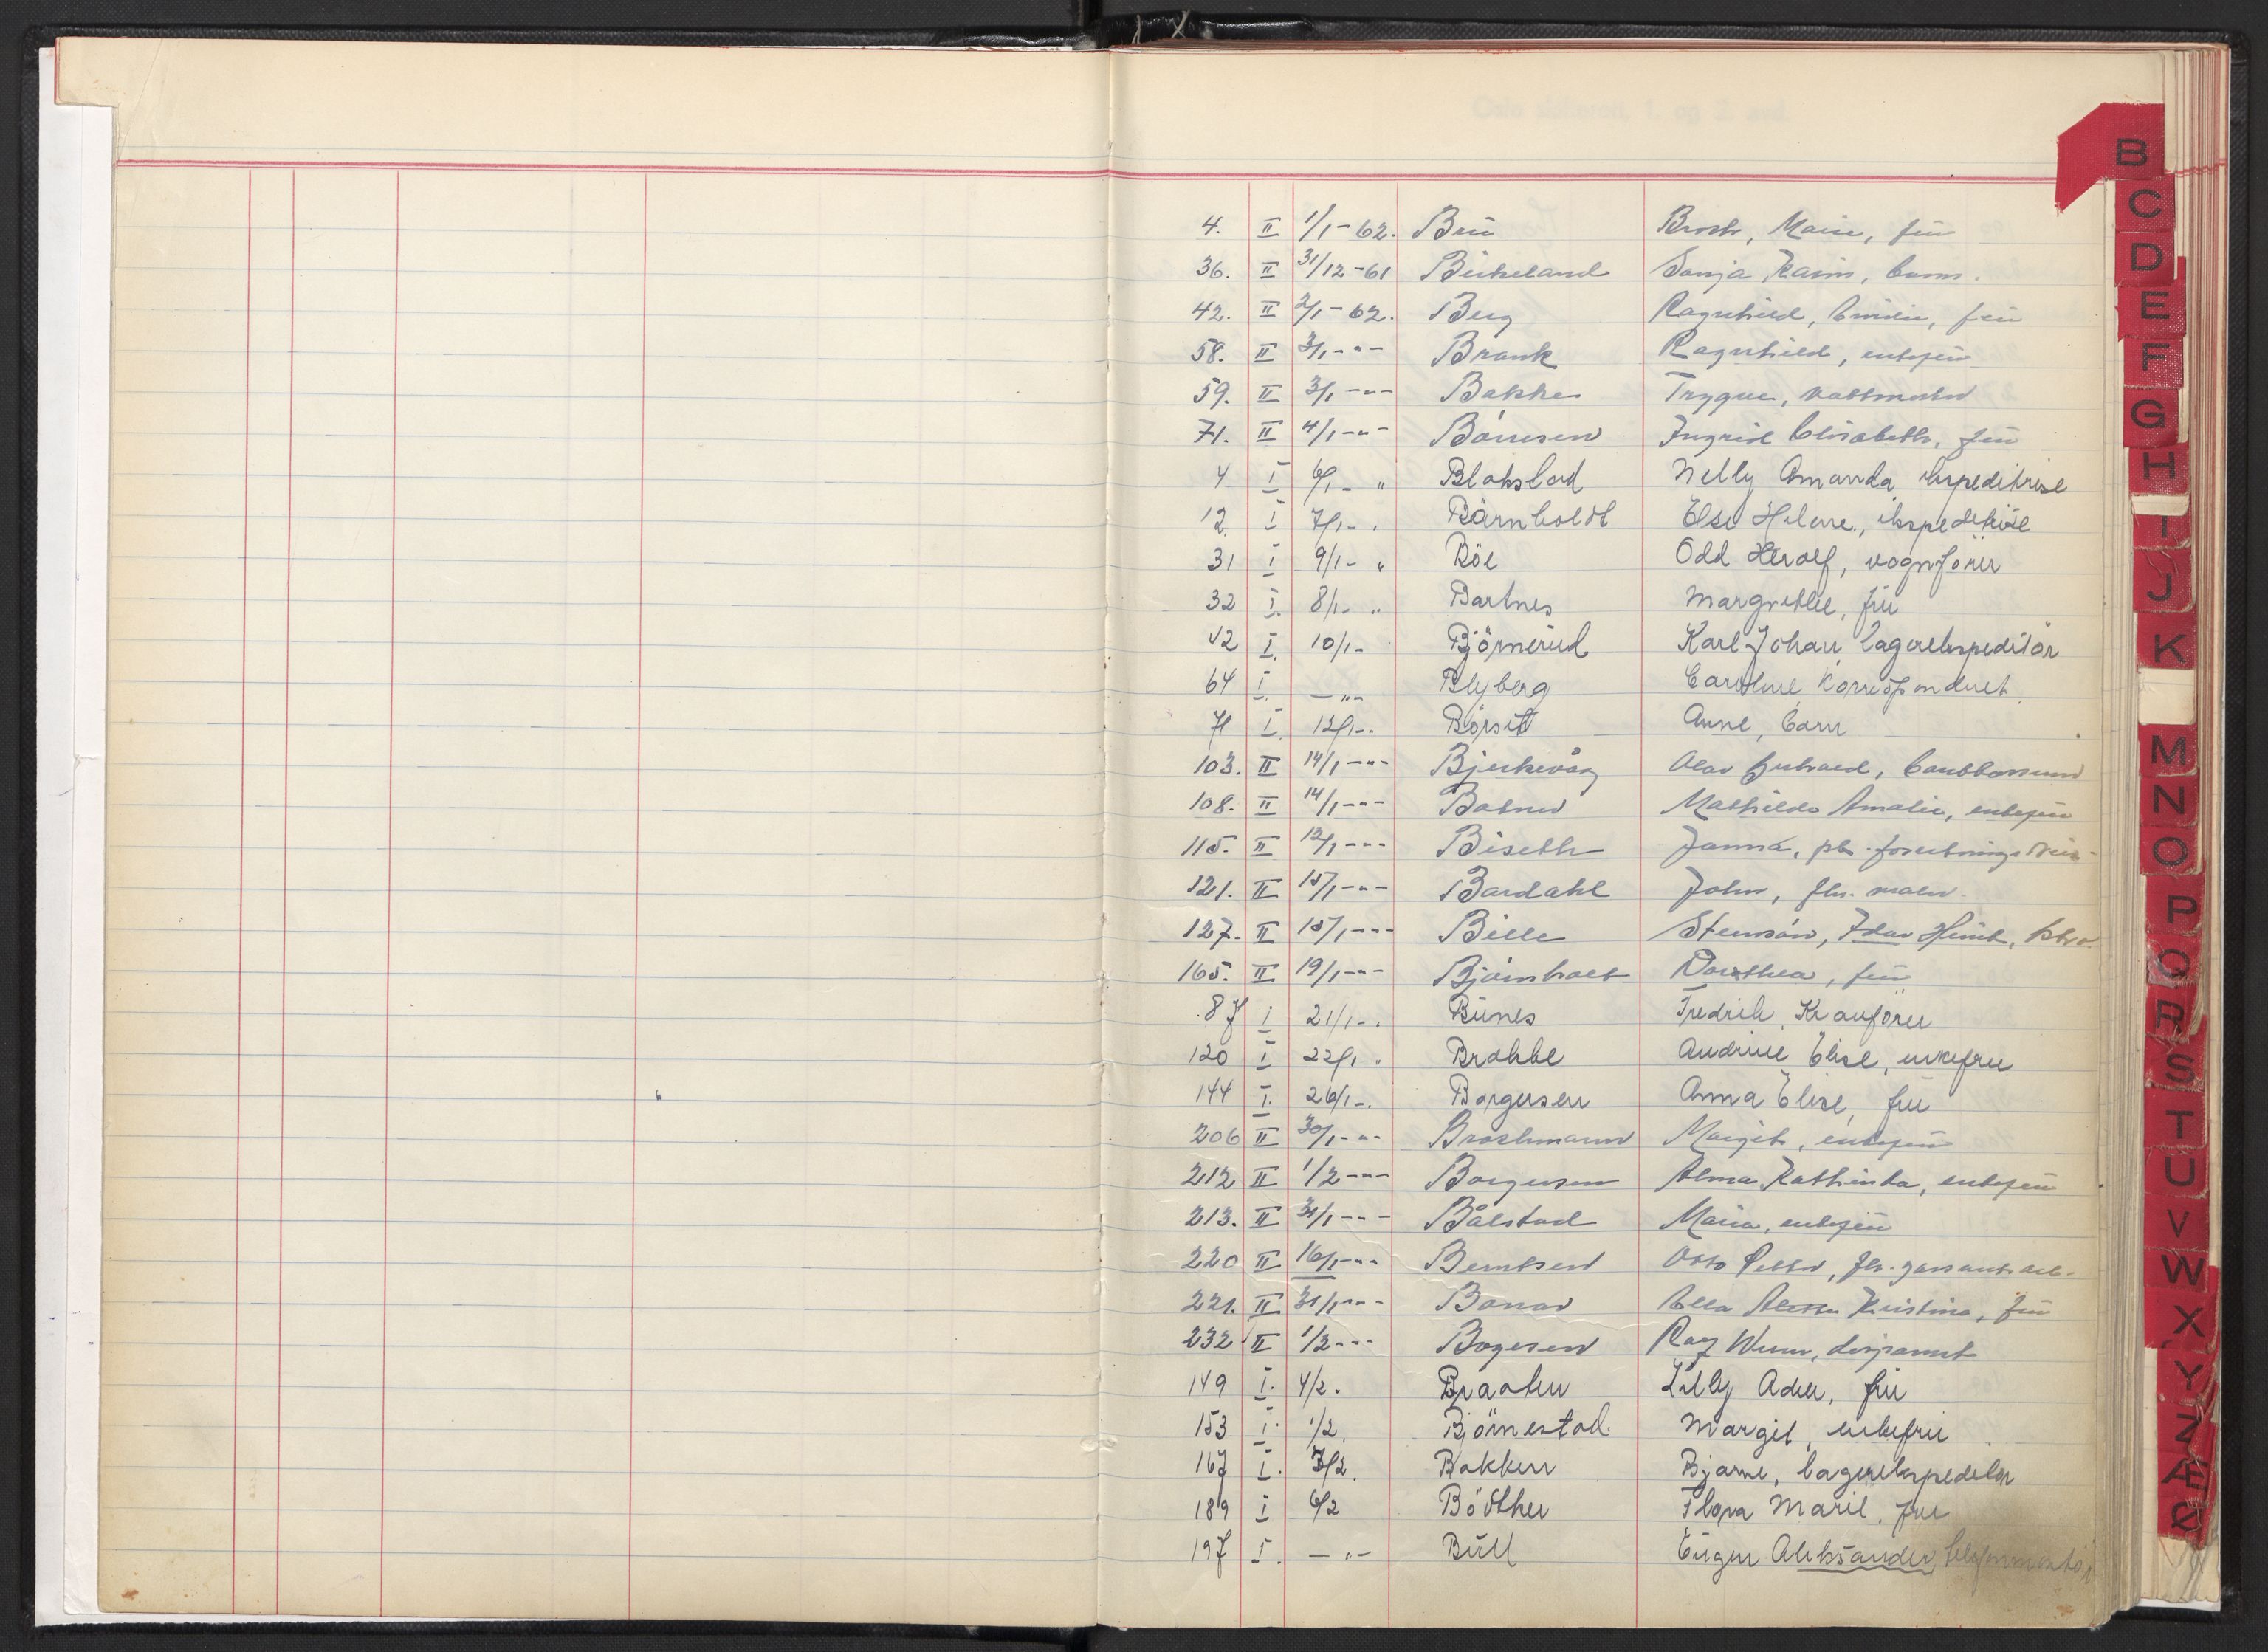 B
4. II 1/1-62. Bru Broch, Marie, fru
C
36. II 31/12-61 Birkeland Sonja Karin, barn.
D
42. II 2/1-62. Berg Ragnhild, Emilie, fru
E
58. II 3/1-"- Brank Ragnhild, enkefru
F
59. II 3/1-"- Bakke Trygve, vaktmester
G
71. II 4/1-"- Börresen Ingrid Elisabeth, fru
H
4 I 6/1- " Blokslad Nelly Amanda ekspeditrise
I
12. I 7/1- . Bärnholdt Else Helene, ekspeditrise
31 I 9/1- " Böe Odd Herolf, vognförer
J
32 I. 8/1- " Bartnes Margrethe, fru
K
42 I. 10/1- Björnerud Karl Johan lagerekspeditör
64 I. -"- Blyberg Caroline korrespondent.
71 I. 12/1-. Börset Anne, barn
M
103. II 14/1-"- Bjerkevåg Olav
N
108. II 14/1-"- Batner Mathilde Amalie, enkefru
O
115. II 12/1-"- Biseth Janna,
121. II 15/1-"- Bardahl John, fhv. maler.
P
127. II 15/1-"- Bille
Q
165. II 19/1-"- Björnholt Dorthea, fru
R
87 I 21/1-. Bunes Fredrik, Kranförer
S
120 I 22/1 " Brakke Andrine Elise, enkefru
T
144 I. 26/1-. Borgersen Anna Elise, fru
206 II 30/1-"- Brochmann Margit, enkefru
U
212 II 1/2-"- Borgersen Alma Kathinka, enkefru
V
213. II 31/1-"- Bålstad Maria, enkefru
W
220 II 16/1-"- Berntsen Otto Petter, fhv.
X
221. II 31/1-"- Bonav Ella Kristine, fru
232 II 1/2-"- Bogesen Roy disponent
Y
149 I. 4/2. Braaten Lilly Adele, fru
Z
153 I. 1/2. Björnestad. Margit, enkefru
Æ
167 I. 3/2. Bakken Bjarne, lagerekspeditör
Ø
189 I 6/2 Bödtker Flora Marie, fru
197 I. -"- Bull Eugen Aleksander,